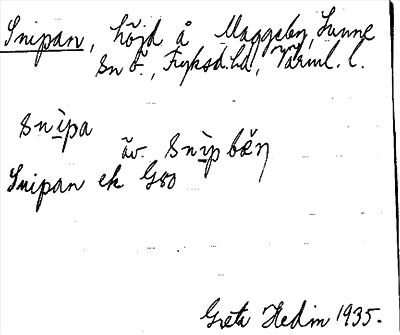 Snipan, höjd å Maggeby, Sunne
sn ö., Fryksd. hd, Värml. l.
snìpa
äv. snìpbǽŋ
Snipan ek G50
Greta Hedin 1935.